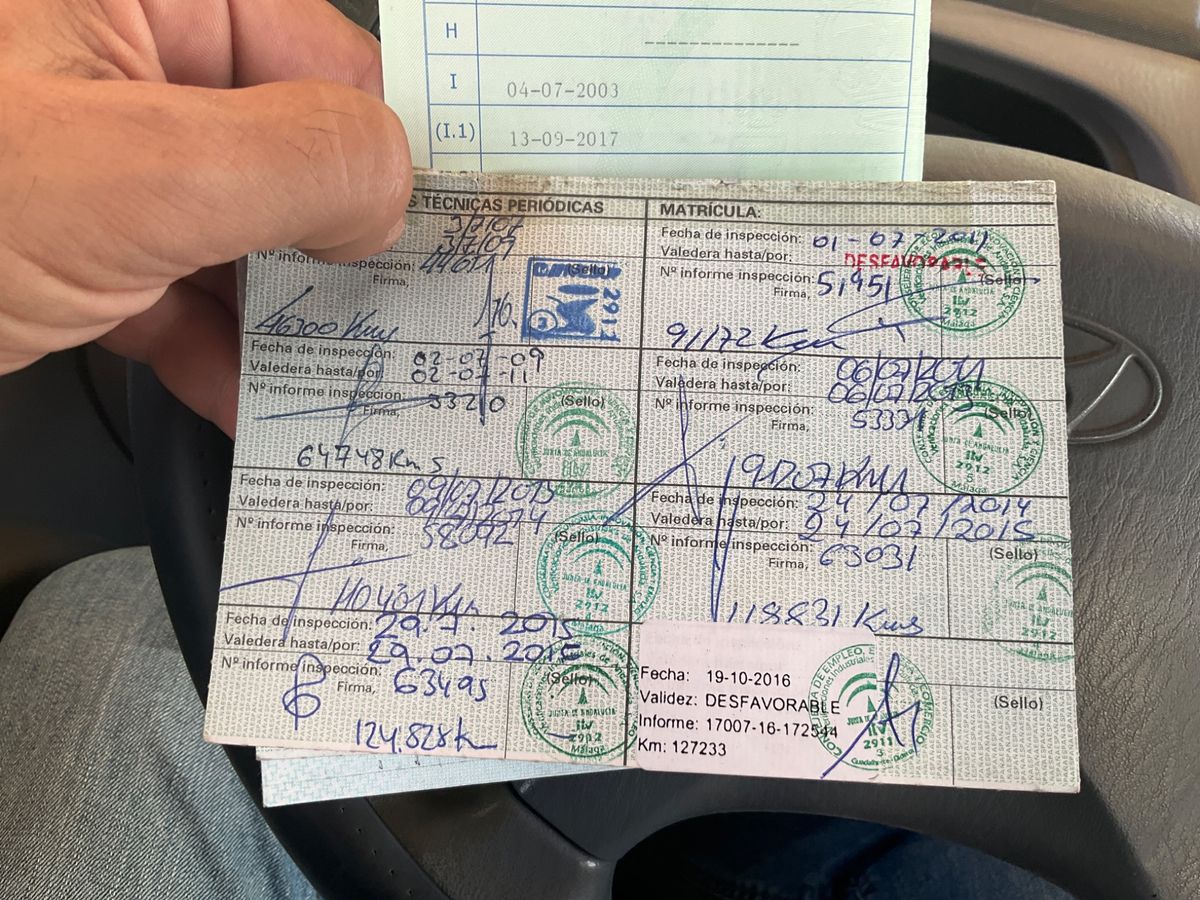 H
--------------
I
04-07-2003
(I.1)
13-09-2017
S TÉCNICAS PERIÓDICAS
3/7/07
3/7/09
Nº informe inspección: 44611
Firma,
(Sello)
2911
46300 Kms
Fecha de inspección: 02-07-09
Valedera hasta/por: 02-07-11
Nº informe inspección: 5320
Firma,
(Sello)
JUNTA DE ANDALUCIA
ITV
64748 Kms
Fecha de inspección: 09/07/2013
Valedera hasta/por:
Nº informe inspección: 58092
Firma,
(Sello)
JUNTA DE ANDALUCIA
ITV
2912
Málaga
110431 Km
Fecha de inspección: 29.7.2015
Valedera hasta/por: 29.07.2016
Nº informe inspección: 63495
Firma,
(Sello)
JUNTA DE ANDALUCIA
ITV
2912
Málaga
124.828 K
MATRÍCULA:
Fecha de inspección: 01-07-2011
Valedera hasta/por: DESFAVORABLE
Nº informe inspección: 51951
Firma,
(Sello)
ITV
2912
Málaga
91172 Km
Fecha de inspección: 06/07/2011
Valedera hasta/por: 06/07/2013
Nº informe inspección: 53331
Firma,
(Sello)
JUNTA DE ANDALUCIA
ITV
2912
91207 KM
Fecha de inspección: 24/07/2014
Valedera hasta/por: 24/07/2015
Nº informe inspección: 63031
Firma,
(Sello)
118831 Kms
Fecha: 19-10-2016
Validez: DESFAVORABLE
Informe: 17007-16-172544
Km: 127233
ITV
2911
3
(Sello)